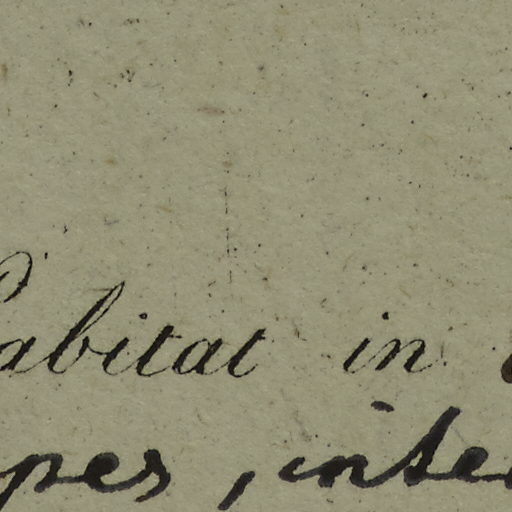 habitat in
pes, inte